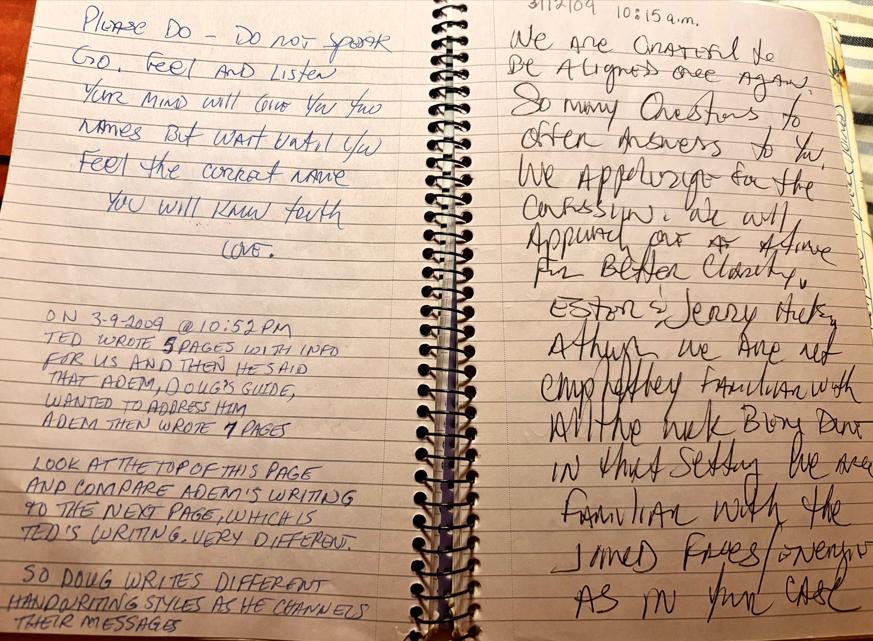 PLEASE DO – DO NOT SPEAK
GO. FEEL AND LISTEN
YOUR MIND WILL GIVE YOU TWO
NAMES BUT WAIT UNTIL YOU
FEEL THE CORRECT NAME
YOU WILL KNOW TRUTH
LOVE.
ON 3-9-2009 @ 10:52 PM
TED WROTE 5 PAGES WITH INFO
FOR US AND THEN HE SAID
THAT ADEM, DOUG'S GUIDE,
WANTED TO ADDRESS HIM
ADEM THEN WROTE 7 PAGES
LOOK AT THE TOP OF THIS PAGE
AND COMPARE ADEM'S WRITING
TO THE NEXT PAGE, WHICH IS
TED'S WRITING. VERY DIFFERENT.
SO DOUG WRITES DIFFERENT
HANDWRITING STYLES AS HE CHANNELS
THEIR MESSAGES
3/12/09 10:15 a.m.
WE ARE GRATEFUL to
BE ALIGNED ONCE AGAIN.
So many Questions to
offer ANSWERS to YOU.
WE Appoligize for the
CONFUSSION. WE WILL
APPROACH ONE AT A time
for BETTER Clarity.
ESTER & Jerry Hicks
Although WE ARE not
completley FAMILIAR WITH
All the work BEING DONE
IN that Setting WE ARE
FAMILIAR WITH the
JOINED FORCES/ENERGIES
AS IN YOUR CASE